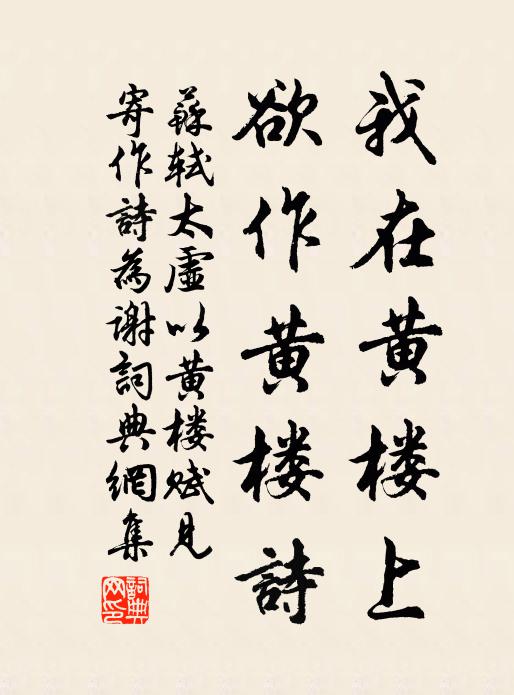 我在黄楼上
欲作黄楼詩
蘇軾太虛以黄楼赋見
寄作詩為谢詞典網集
詞典网印